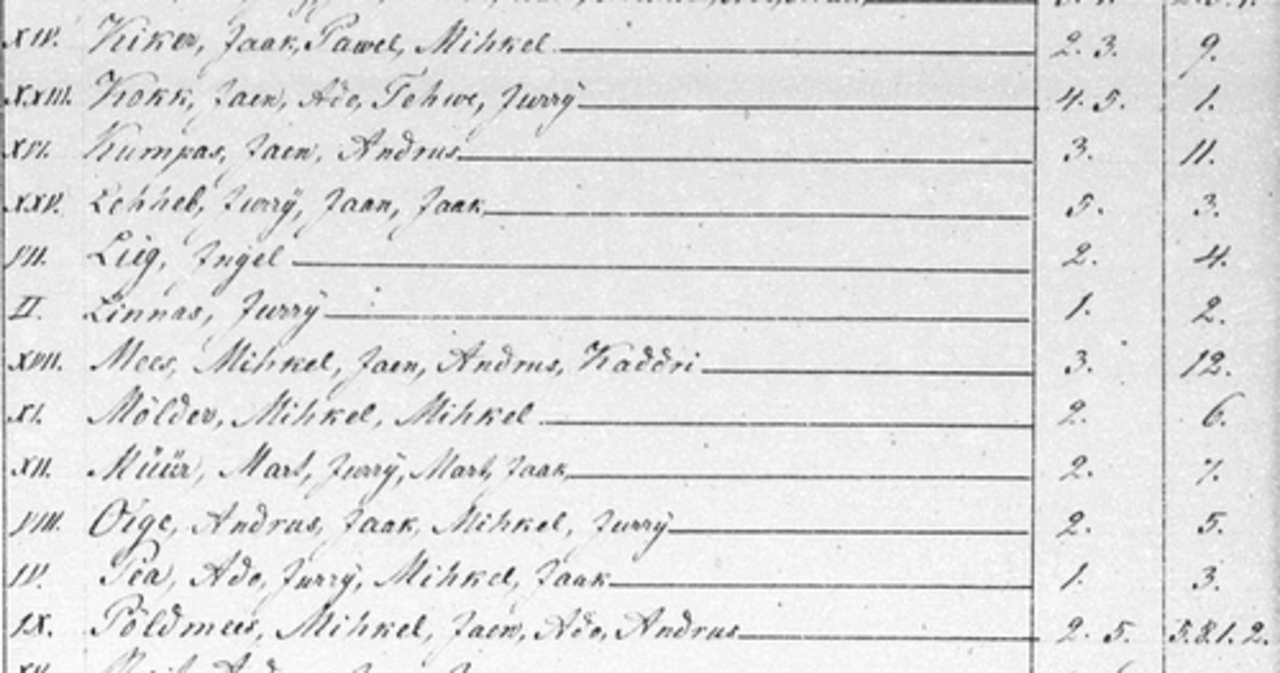 XIV. Kiker, Jaak, Pawel, Mihkel 2. 3. 9.
XXIII. Kokk, Jaen, Ado, Tehwe, Jurrÿ 4. 5. 1.
XVI. Kumpas, Jaen, Andrus 3. 11.
XXV. Lehheb, Jurrÿ, Jaan, Jaak 5. 3.
VII. Liig, Ingel 2. 4.
II. Linnas, Jurrÿ 1. 2.
XVII. Mees, Mihkel, Jaen, Andrus, Kaddri 3. 12.
XI. Mölder, Mihkel, Mihkel 2. 6.
XII. Müür, Mart, Jurrÿ, Mart, Jaak 2. 7.
VIII. Öige, Andrus, Jaak, Mihkel, Jurrÿ 2. 5.
IV. Pea, Ado, Jurrÿ, Mihkel, Jaak 1. 3.
IX. Pöldmees, Mihkel, Jaen, Ado, Andrus 2. 5. 5.8.1.2.